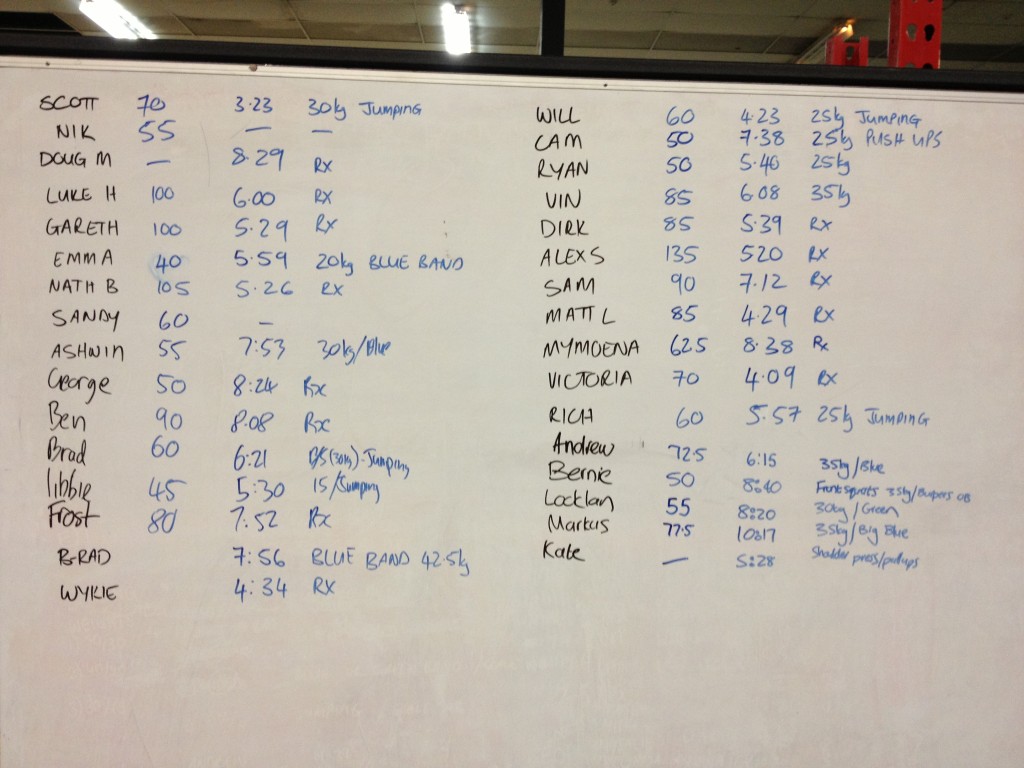 SCOTT 70 3.23 30kg Jumping
NIK 55 — —
DOUG M — 8.29 Rx
LUKE H 100 6.00 Rx
GARETH 100 5.29 Rx
EMMA 40 5.59 20kg BLUE BAND
NATH B 105 5.26 Rx
SANDY 60 —
ASHWIN 55 7:53 30kg/Blue
George 50 8:24 Rx
Ben 90 8.08 Rx
Brad 60 6:21 (30kg)-Jumping
libbie 45 5:30 15/Jumping
Frost 80 7:52 Rx
BRAD 7:56 BLUE BAND 42.5kg
WYKIE 4:34 RX
WILL 60 4.23 25kg Jumping
CAM 50 7.38 25kg PUSH UPS
RYAN 50 5.40 25kg
VIN 85 6.08 35kg
DIRK 85 5.39 Rx
ALEX S 135 520 Rx
SAM 90 7.12 Rx
MATT L 85 4.29 Rx
MYMOENA 62.5 8.38 Rx
VICTORIA 70 4.09 Rx
RICH 60 5.57 25kg JUMPING
Andrew 72.5 6:15 35kg/Blue
Bernie 50 8:40 Front squats 35kg/Burpees OB
Locklan 55 8:20 30kg/Green
Markus 77.5 10:17 35kg/Big Blue
Kate — 5:28 Sholder press/pullups